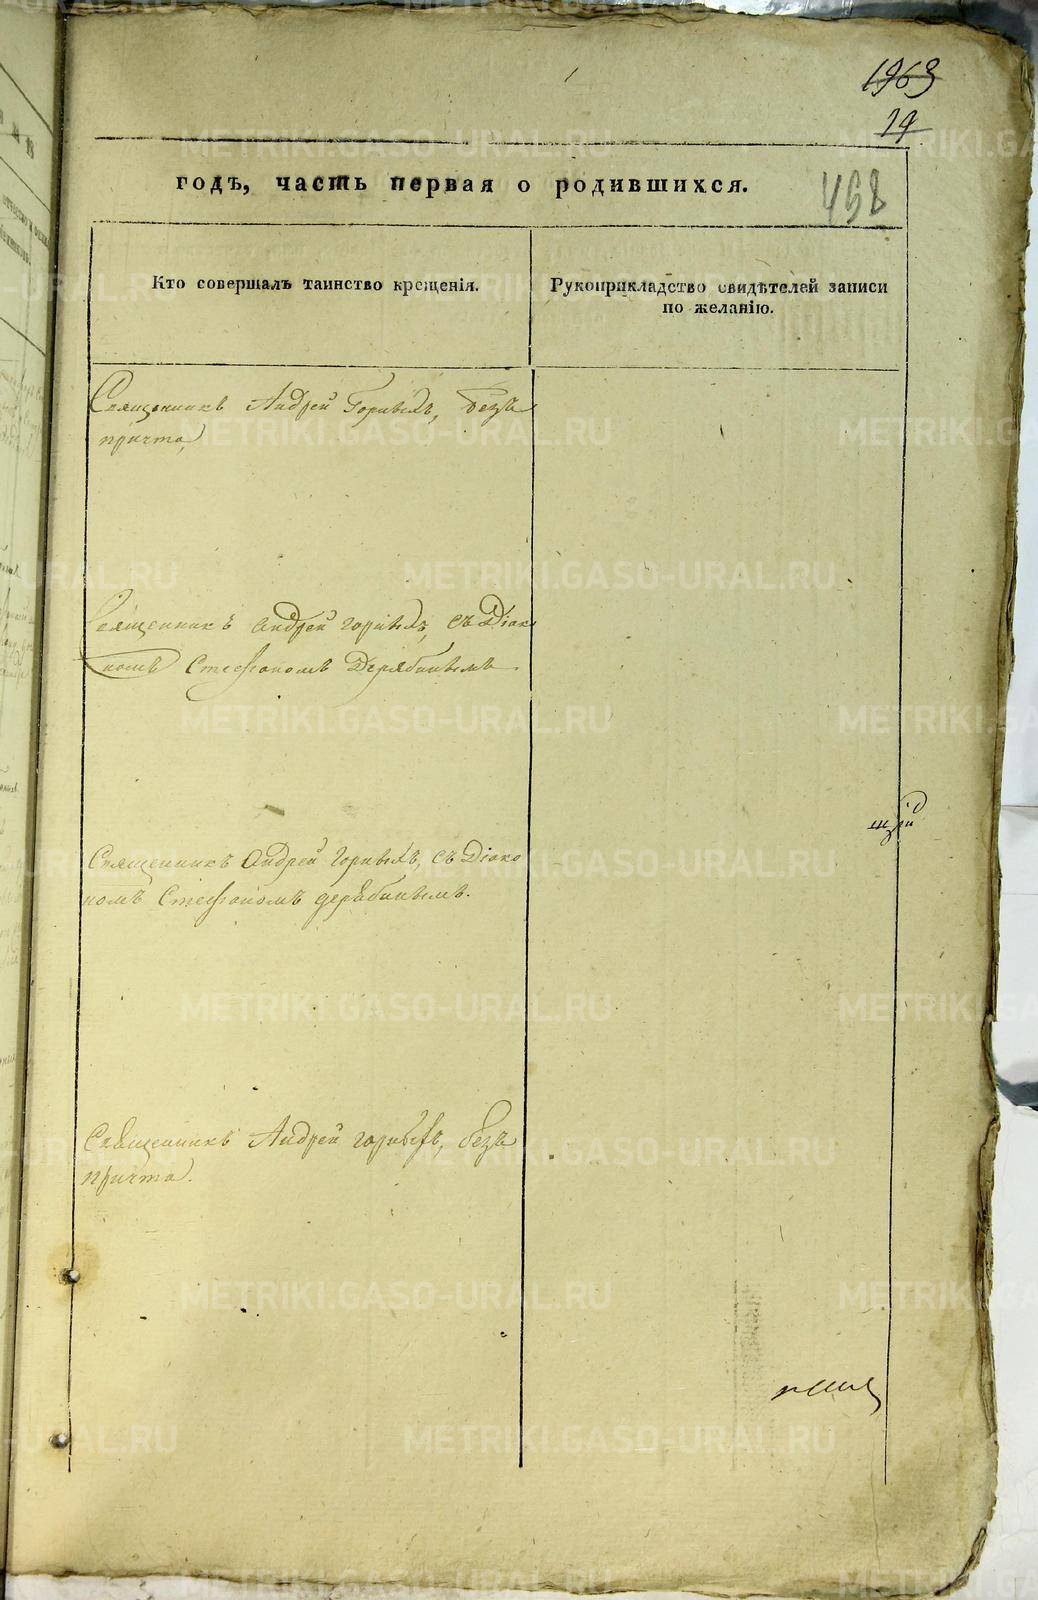 1963
19
458
годъ, часть первая о родившихся.
Кто совершалъ таинство крещенія.
Рукоприкладство свидѣтелей записи
по желанію.
Священникъ Андрей Горныхъ, безъ
причта,
Священникъ Андрей Горныхъ, съ Діако
номъ Стефаномъ Дерябинымъ
Священникъ Андрей Горныхъ, съ Діако
номъ Стефаномъ дерябинымъ.
Священникъ Андрей горныхъ, безъ
причта.
METRIKI.GASO-URAL.RU